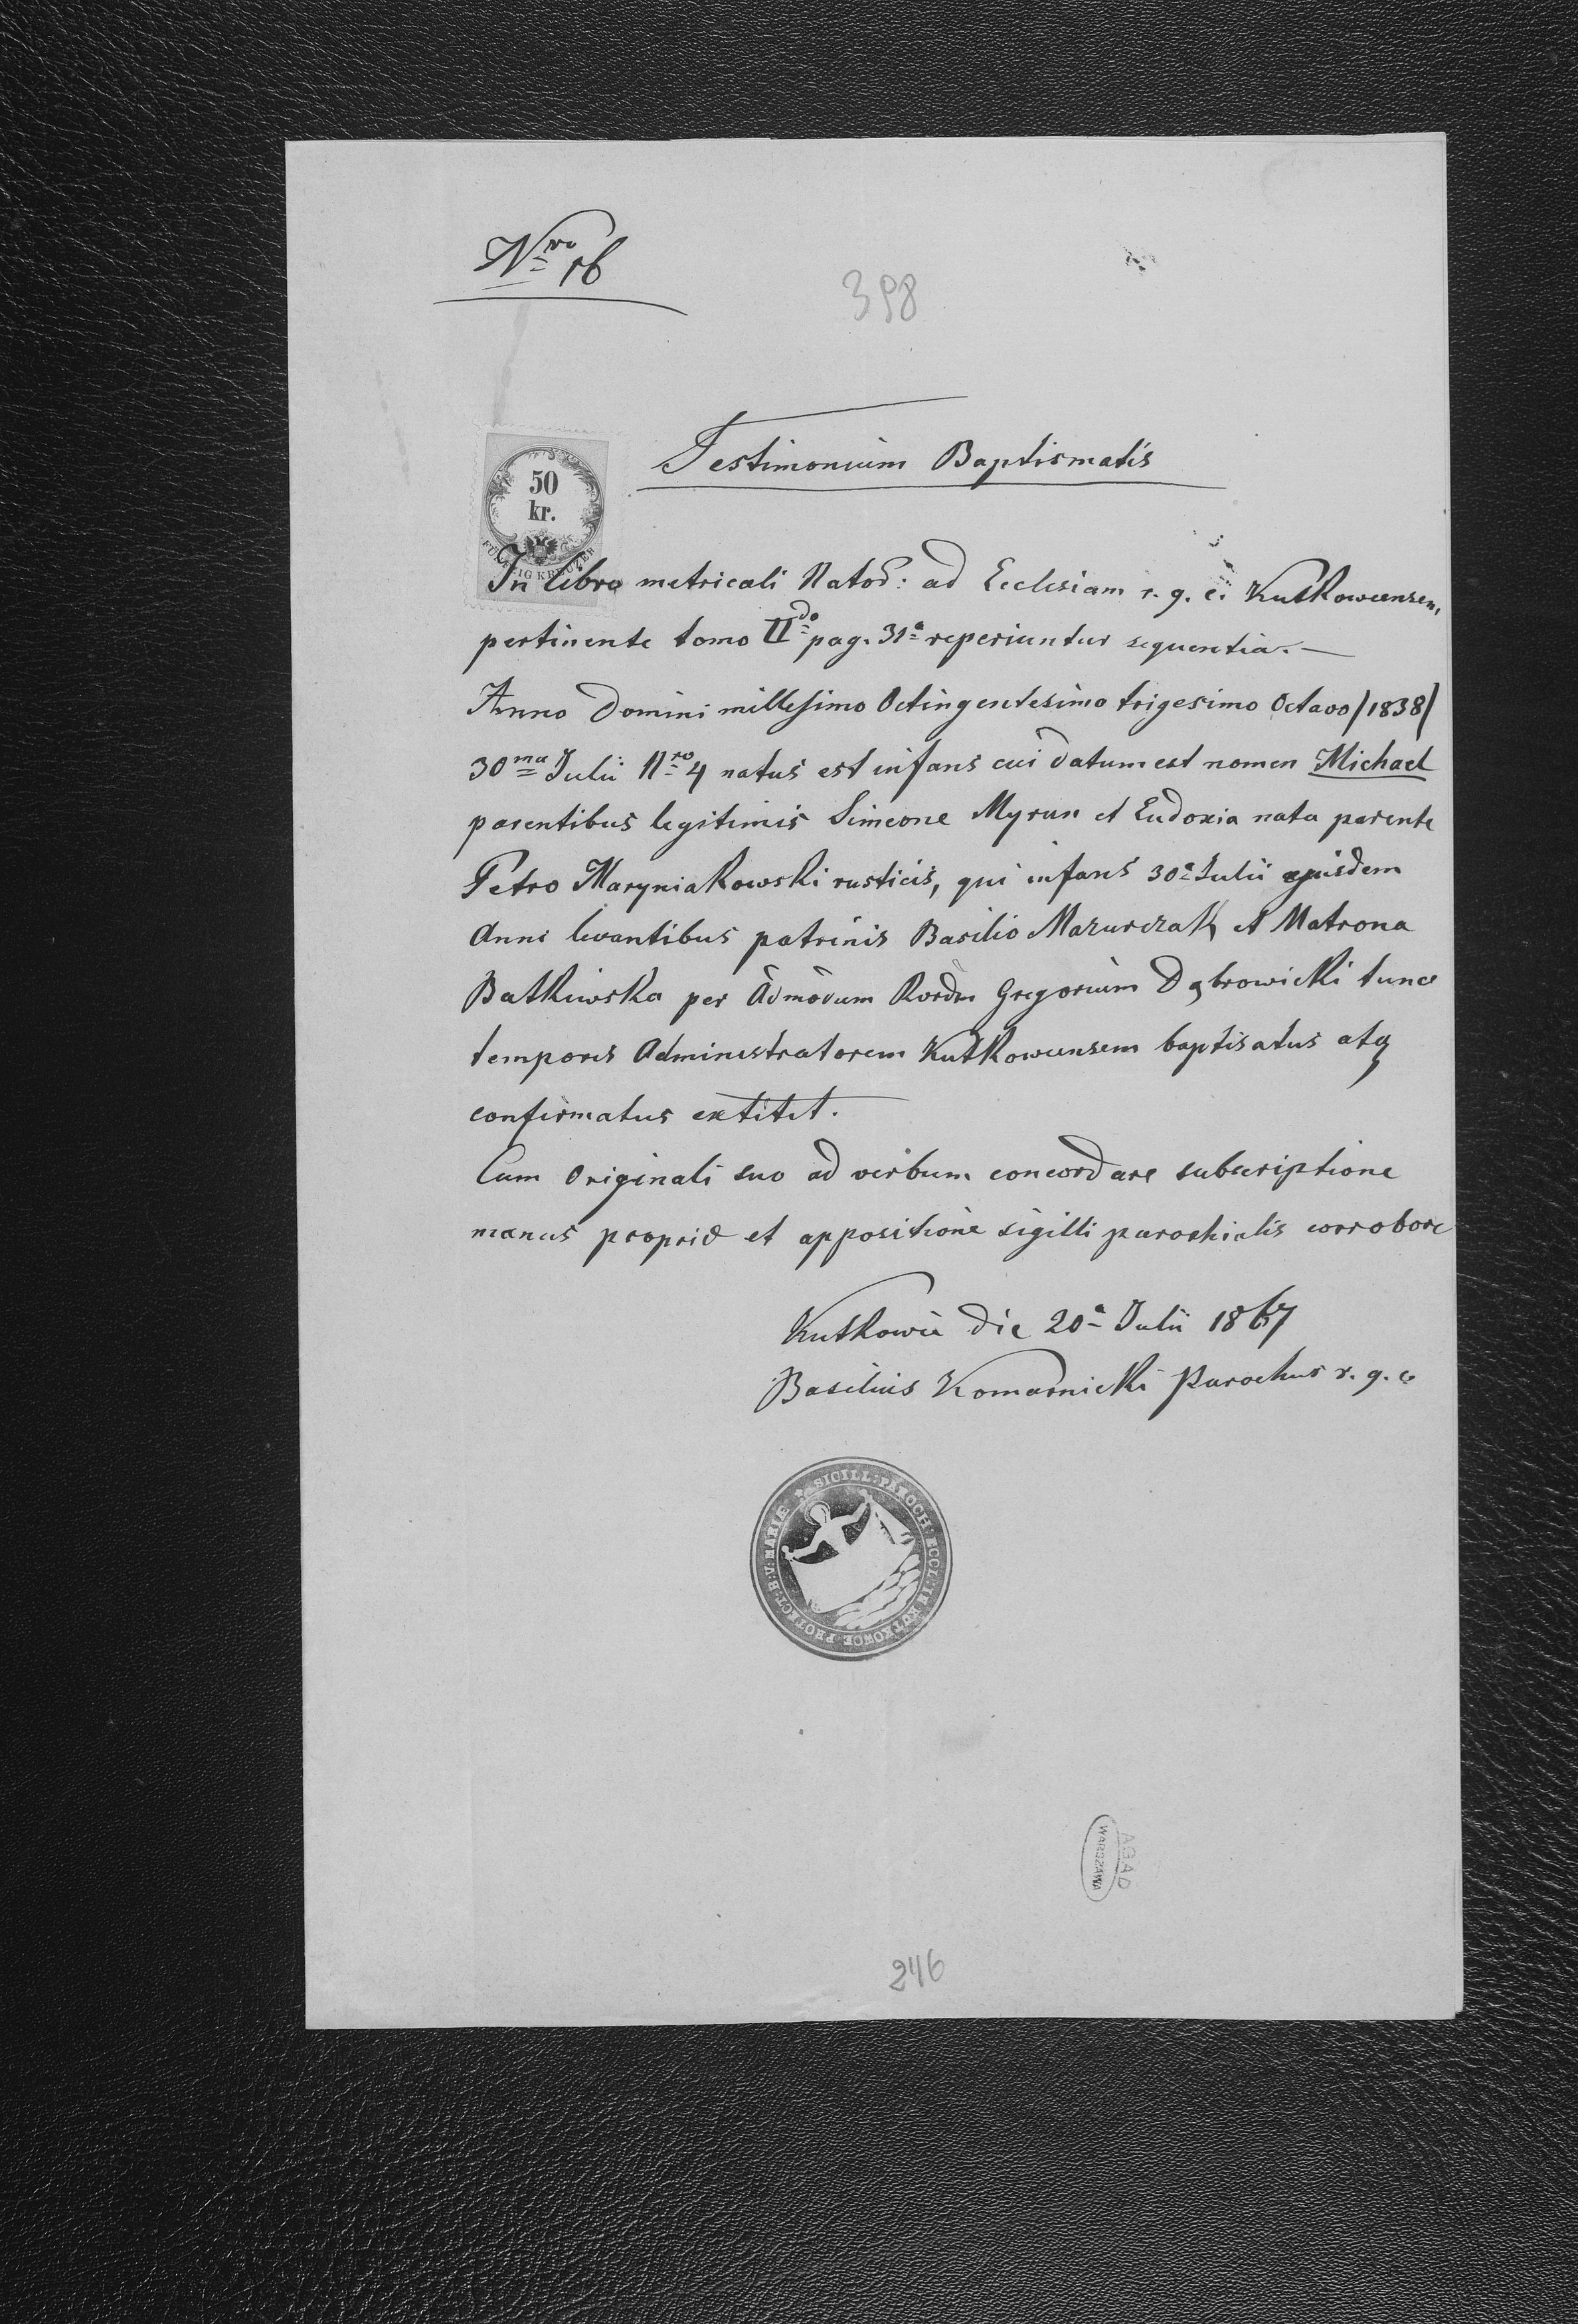 Nro 16
398
50
kr.
FÜNFZIG KREUZER
Testimonium Baptismatis
In libro metricali Nator: ad Ecclesiam r. g. c. Kutkowcensem,
pertinente tomo IIdo pag. 31a reperiuntur sequentia.—
Anno Domini millesimo Octingentesimo trigesimo Octavo /1838/
30ma Julii Nro 4 natus est infans cui datum est nomen Michael
parentibus legitimis Simeone Myrun et Eudoxia nata parente
Petro Maryniakowski rusticis, qui infans 30a Julii ejusdem
Anni levantibus patrinis Basilio Mazurczak et Matrona
Batkiwska per Admodum Rvrdm Gregorium Dąbrowicki tunc
temporis Administratorem Kutkowcensem baptisatus atq
confirmatus extitit.
Cum Originali suo ad verbum concordare subscriptione
manus propriæ et appositione sigilli parochialis corrobore
Kutkowce die 20a Julii 1867
Basilius Komarnicki Parochus r. g. c.
SIGILL: PAROCH: ECCL: IN KUTKOWCE PROTECT: B: V: MARIÆ
AGAD
WARSZAWA
246